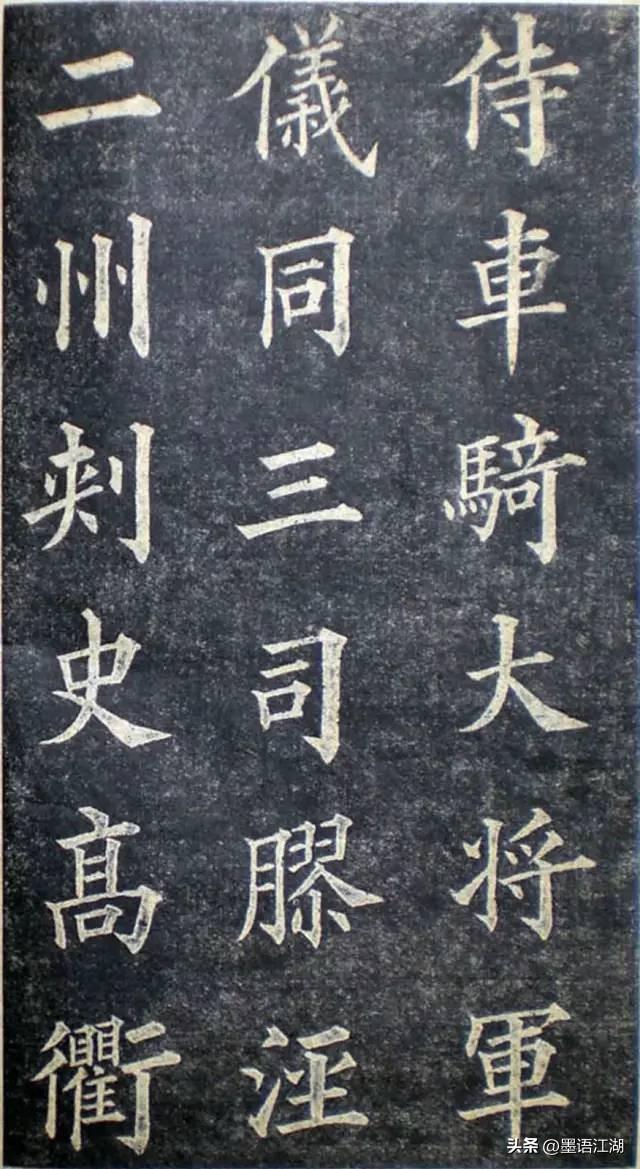 侍車騎大将軍
儀同三司膠涇
二州刾史髙衢
头条 @墨语江湖